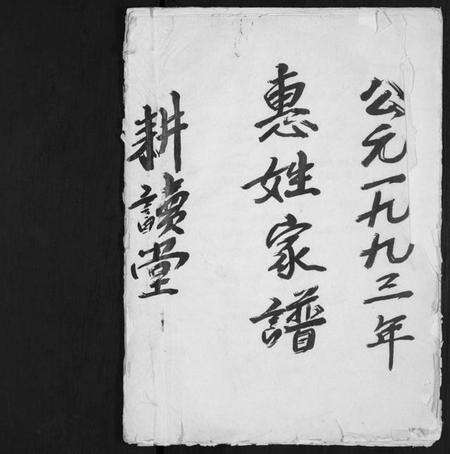 公元一九九三年
惠姓家譜
耕讀堂